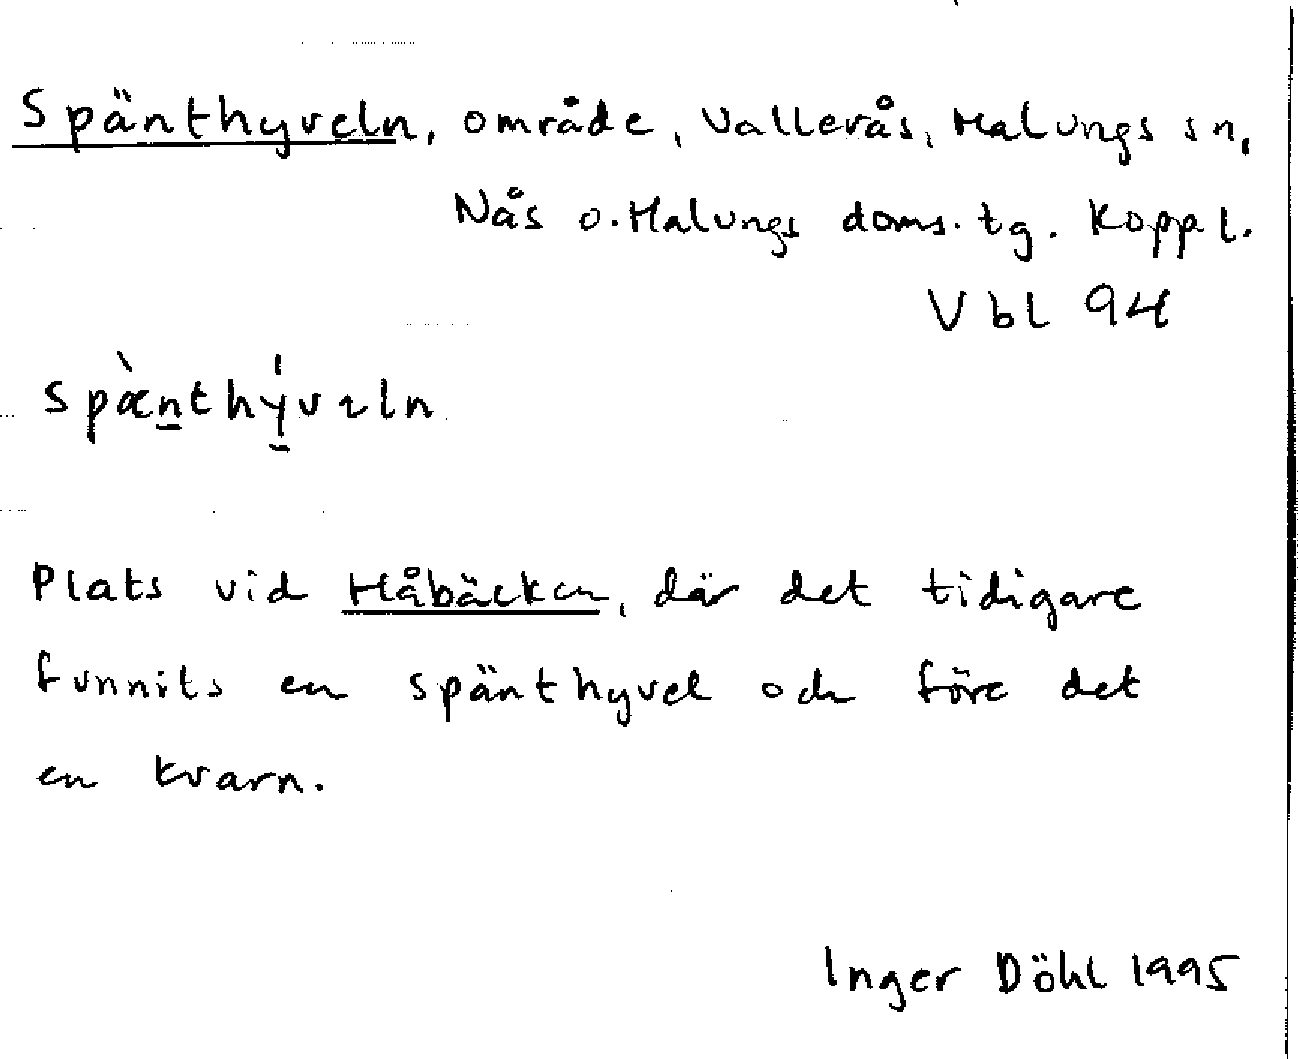 Spänthyveln, område, Vallerås, Malungs sn,
Nås o. Malungs doms. tg. Koppl.
Vbl 94
spæ̀n̠thý̠vəln
Plats vid Håbäcken, där det tidigare
funnits en spänthyvel och före det
en kvarn.
Inger Döhl 1995